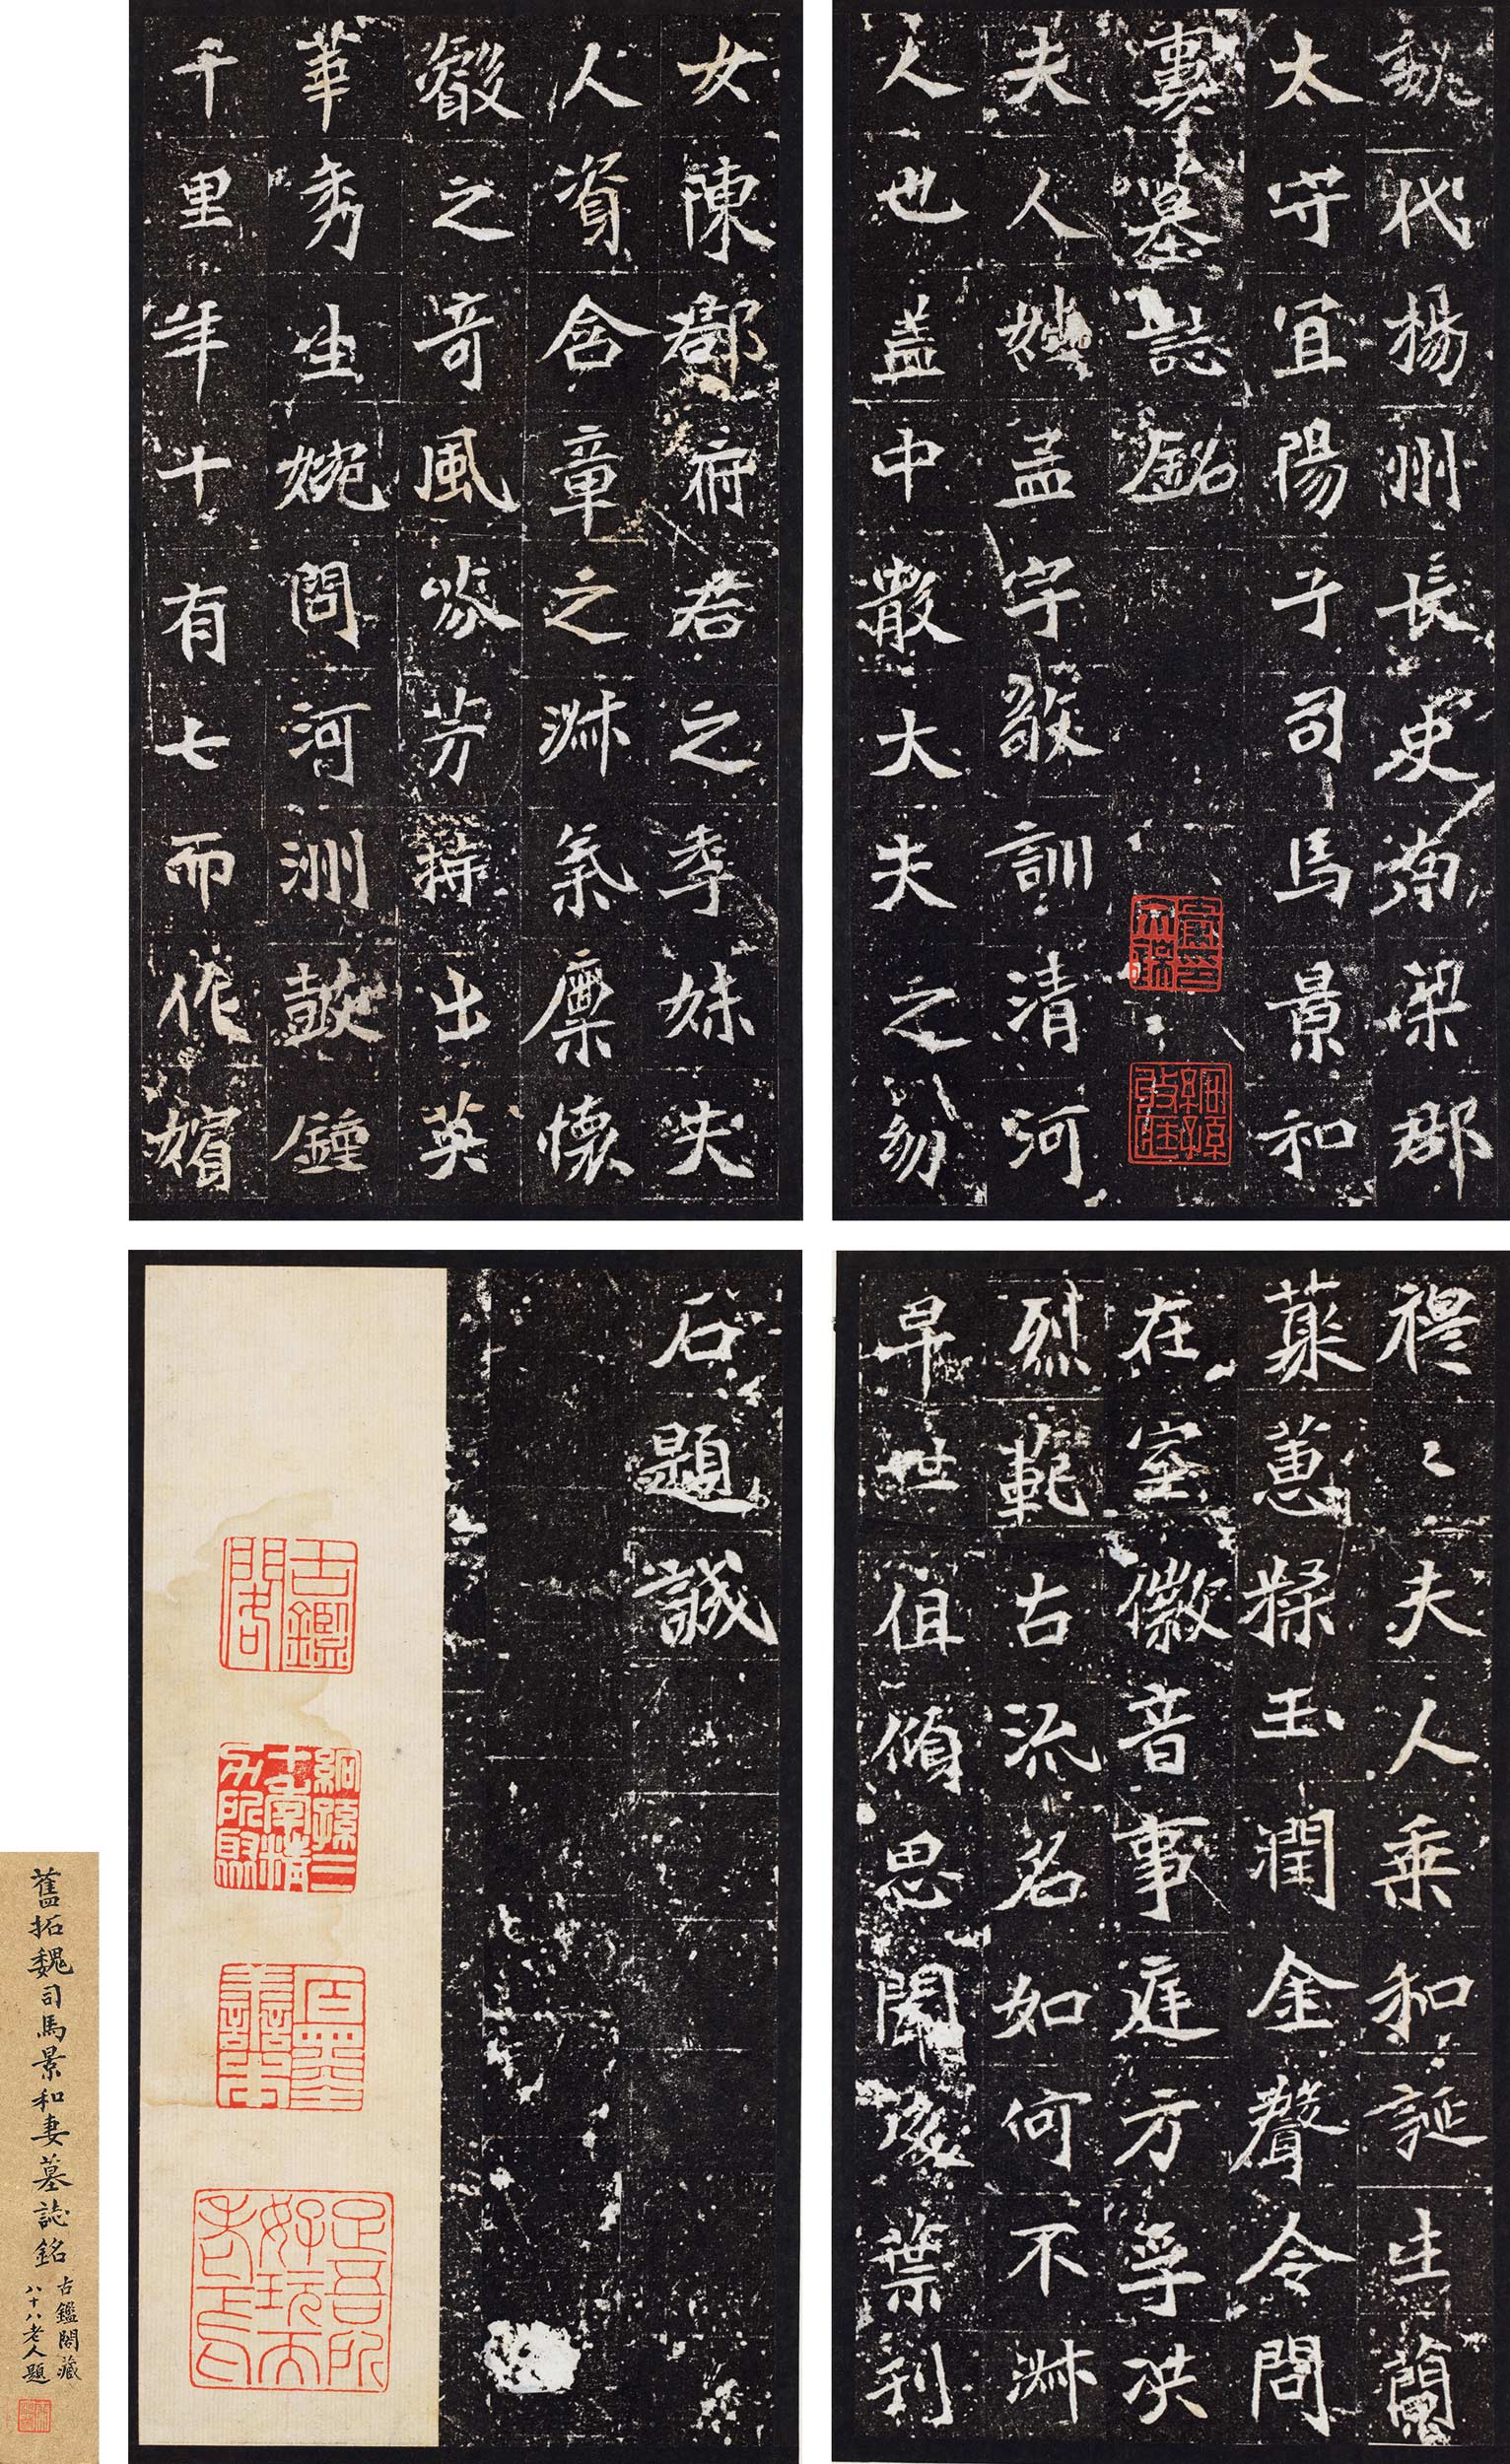 魏代揚州長史南梁郡
太守宜陽子司馬景和
妻墓誌銘
夫人姓孟字敬訓清河
人也盖中散大夫之幼
女陳郡府君之季妹夫
人資含章之淋氣稟懷
叡之奇風芬芳特出英
華秀生婉問河洲鼓鐘
千里年十有七而作嬪
穆〻夫人乗和誕生蘭
蕙糅玉潤金聲令問
在室徽音事庭方孚洪
烈範古流名如何不淋
早世徂傾思聞後葉刊
石題誠
古鑑閣
絅孫三十年精力所聚
百墨
舊拓魏司馬景和妻墓誌銘
古鑑閣藏
八十八老人題